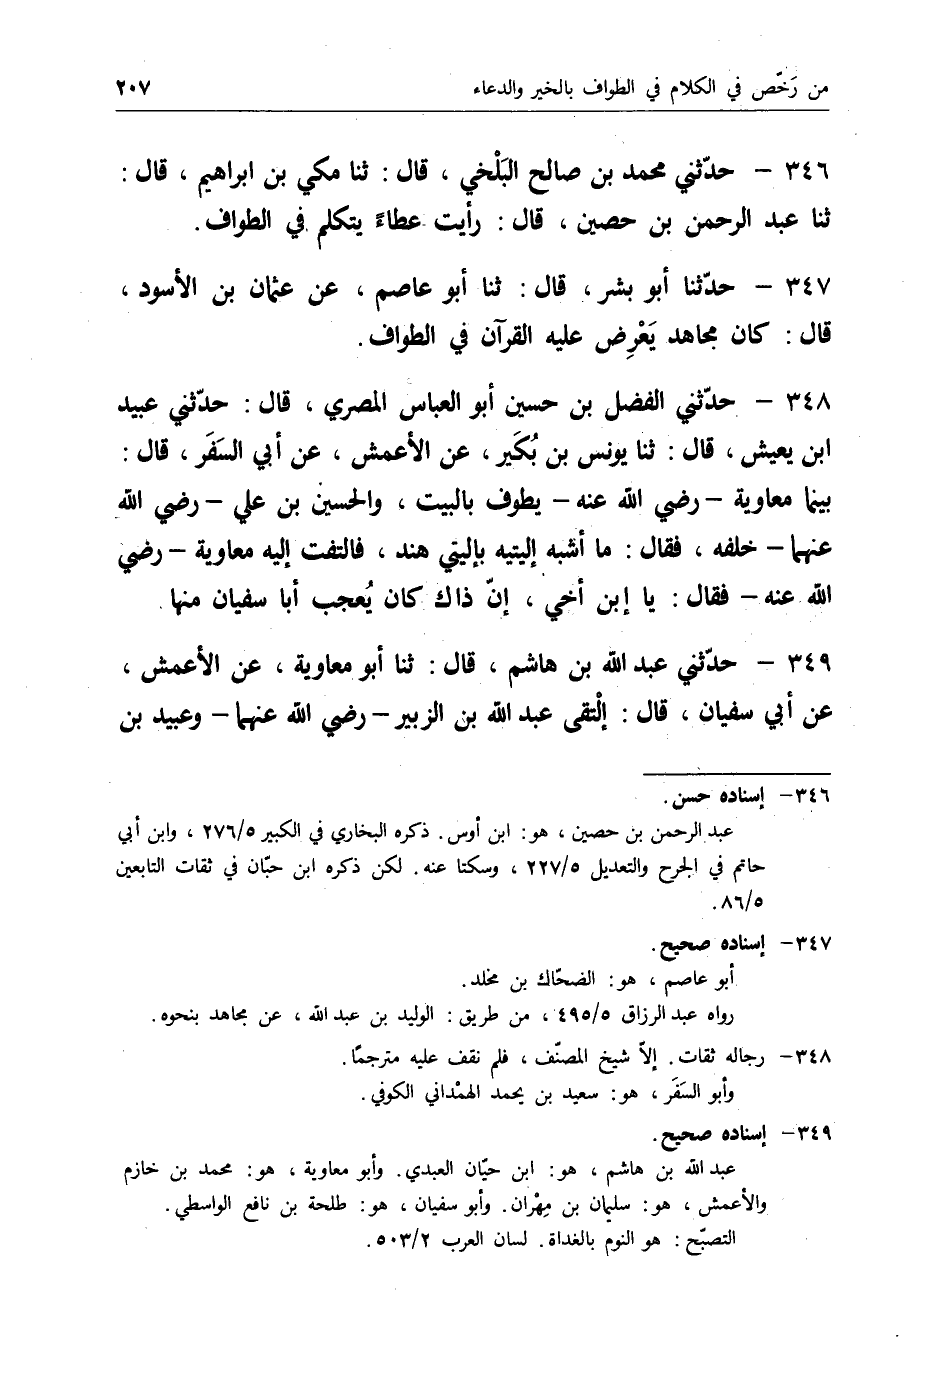 من رَخّص في الكلام في الطواف بالخير والدعاء ٢٠٧
٣٤٦ – حدّثني محمد بن صالح البَلْخي ، قال : ثنا مكي بن ابراهيم ، قال :
ثنا عبد الرحمن بن حصين ، قال : رأيت عطاءً يتكلم في الطواف .
٣٤٧ – حدّثنا أبو بشر ، قال : ثنا أبو عاصم ، عن عثمان بن الأسود ،
قال : كان مجاهد يَعْرِض عليه القرآن في الطواف .
٣٤٨ – حدّثني الفضل بن حسين أبو العباس المصري ، قال : حدّثني عبيد
ابن يعيش ، قال : ثنا يونس بن بُكَير ، عن الأعمش ، عن أبي السَفَر ، قال :
بينما معاوية – رضي الله عنه – يطوف بالبيت ، والحسين بن علي – رضي الله
عنهما – خلفه ، فقال : ما أشبه إليتيه بإليتي هند ، فالتفت إليه معاوية – رضي
الله عنه – فقال : يا إبن أخي ، إنّ ذاك كان يُعجب أبا سفيان منها .
٣٤٩ – حدّثني عبد الله بن هاشم ، قال : ثنا أبو معاوية ، عن الأعمش ،
عن أبي سفيان ، قال : إلْتقى عبد الله بن الزبير – رضي الله عنهما – وعبيد بن
٣٤٦– إسناده حسن .
عبد الرحمن بن حصين ، هو : ابن أوس . ذكره البخاري في الكبير ٢٧٦/٥ ، وابن أبي
حاتم في الجرح والتعديل ٢٢٧/٥ ، وسكتا عنه . لكن ذكره ابن حبّان في ثقات التابعين
٨٦/٥ .
٣٤٧– إسناده صحيح .
أبو عاصم ، هو : الضحّاك بن مخلد .
رواه عبد الرزاق ٤٩٥/٥ ، من طريق : الوليد بن عبد الله ، عن مجاهد بنحوه .
٣٤٨– رجاله ثقات . إلاّ شيخ المصنّف ، فلم نقف عليه مترجمًا .
وأبو السَفَر ، هو : سعيد بن يحمد الهمْداني الكوفي .
٣٤٩– إسناده صحيح .
عبد الله بن هاشم ، هو : ابن حيّان العبدي . وأبو معاوية ، هو : محمد بن خازم
والأعمش ، هو : سليمان بن مِهْران . وأبو سفيان ، هو : طلحة بن نافع الواسطي .
التصبّح : هو النوم بالغداة . لسان العرب ٥٠٣/٢ .